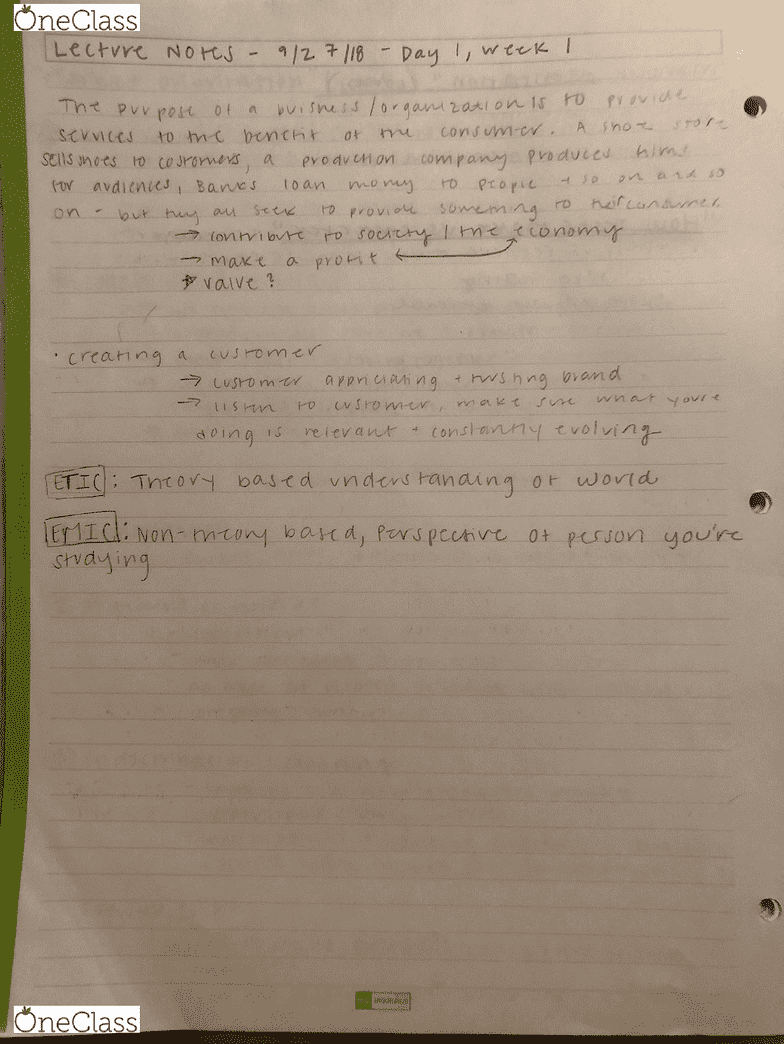 OneClass
Lecture Notes - 9/27/18 - Day 1, Week 1
The purpose of a buisness/organization is to provide
services to the benefit of the consumer. A shoe store
sells shoes to costomers, a production company produces films
for audiences, Banks loan money to people + so on and so
on - but they all seek to provide something to their consumer
→ contribute to society / the economy
→ make a profit
* value?
· creating a customer
→ customer appriciating + trusting brand
→ listen to customer, make sure what you're
doing is relevant + constantly evolving
ETIC: Theory based understanding of world
EMIC: Non-theory based, Perspective of person you're
studying
OneClass